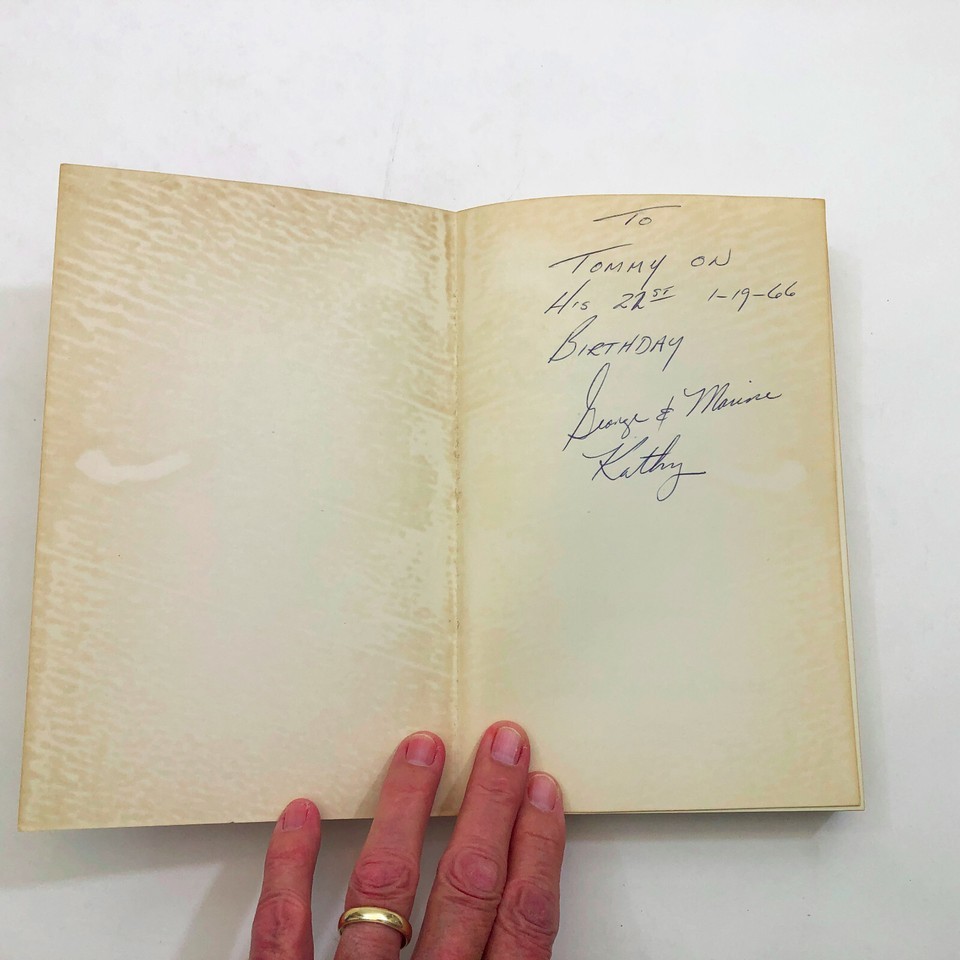 To
Tommy on
His 21st 1-19-66
Birthday
George & Maxine
Kathy